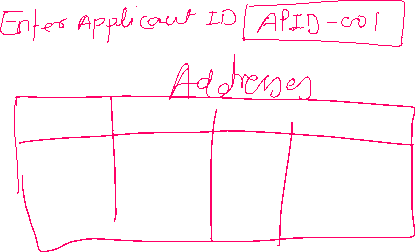 Enter Applicant ID APID-001
Addresses